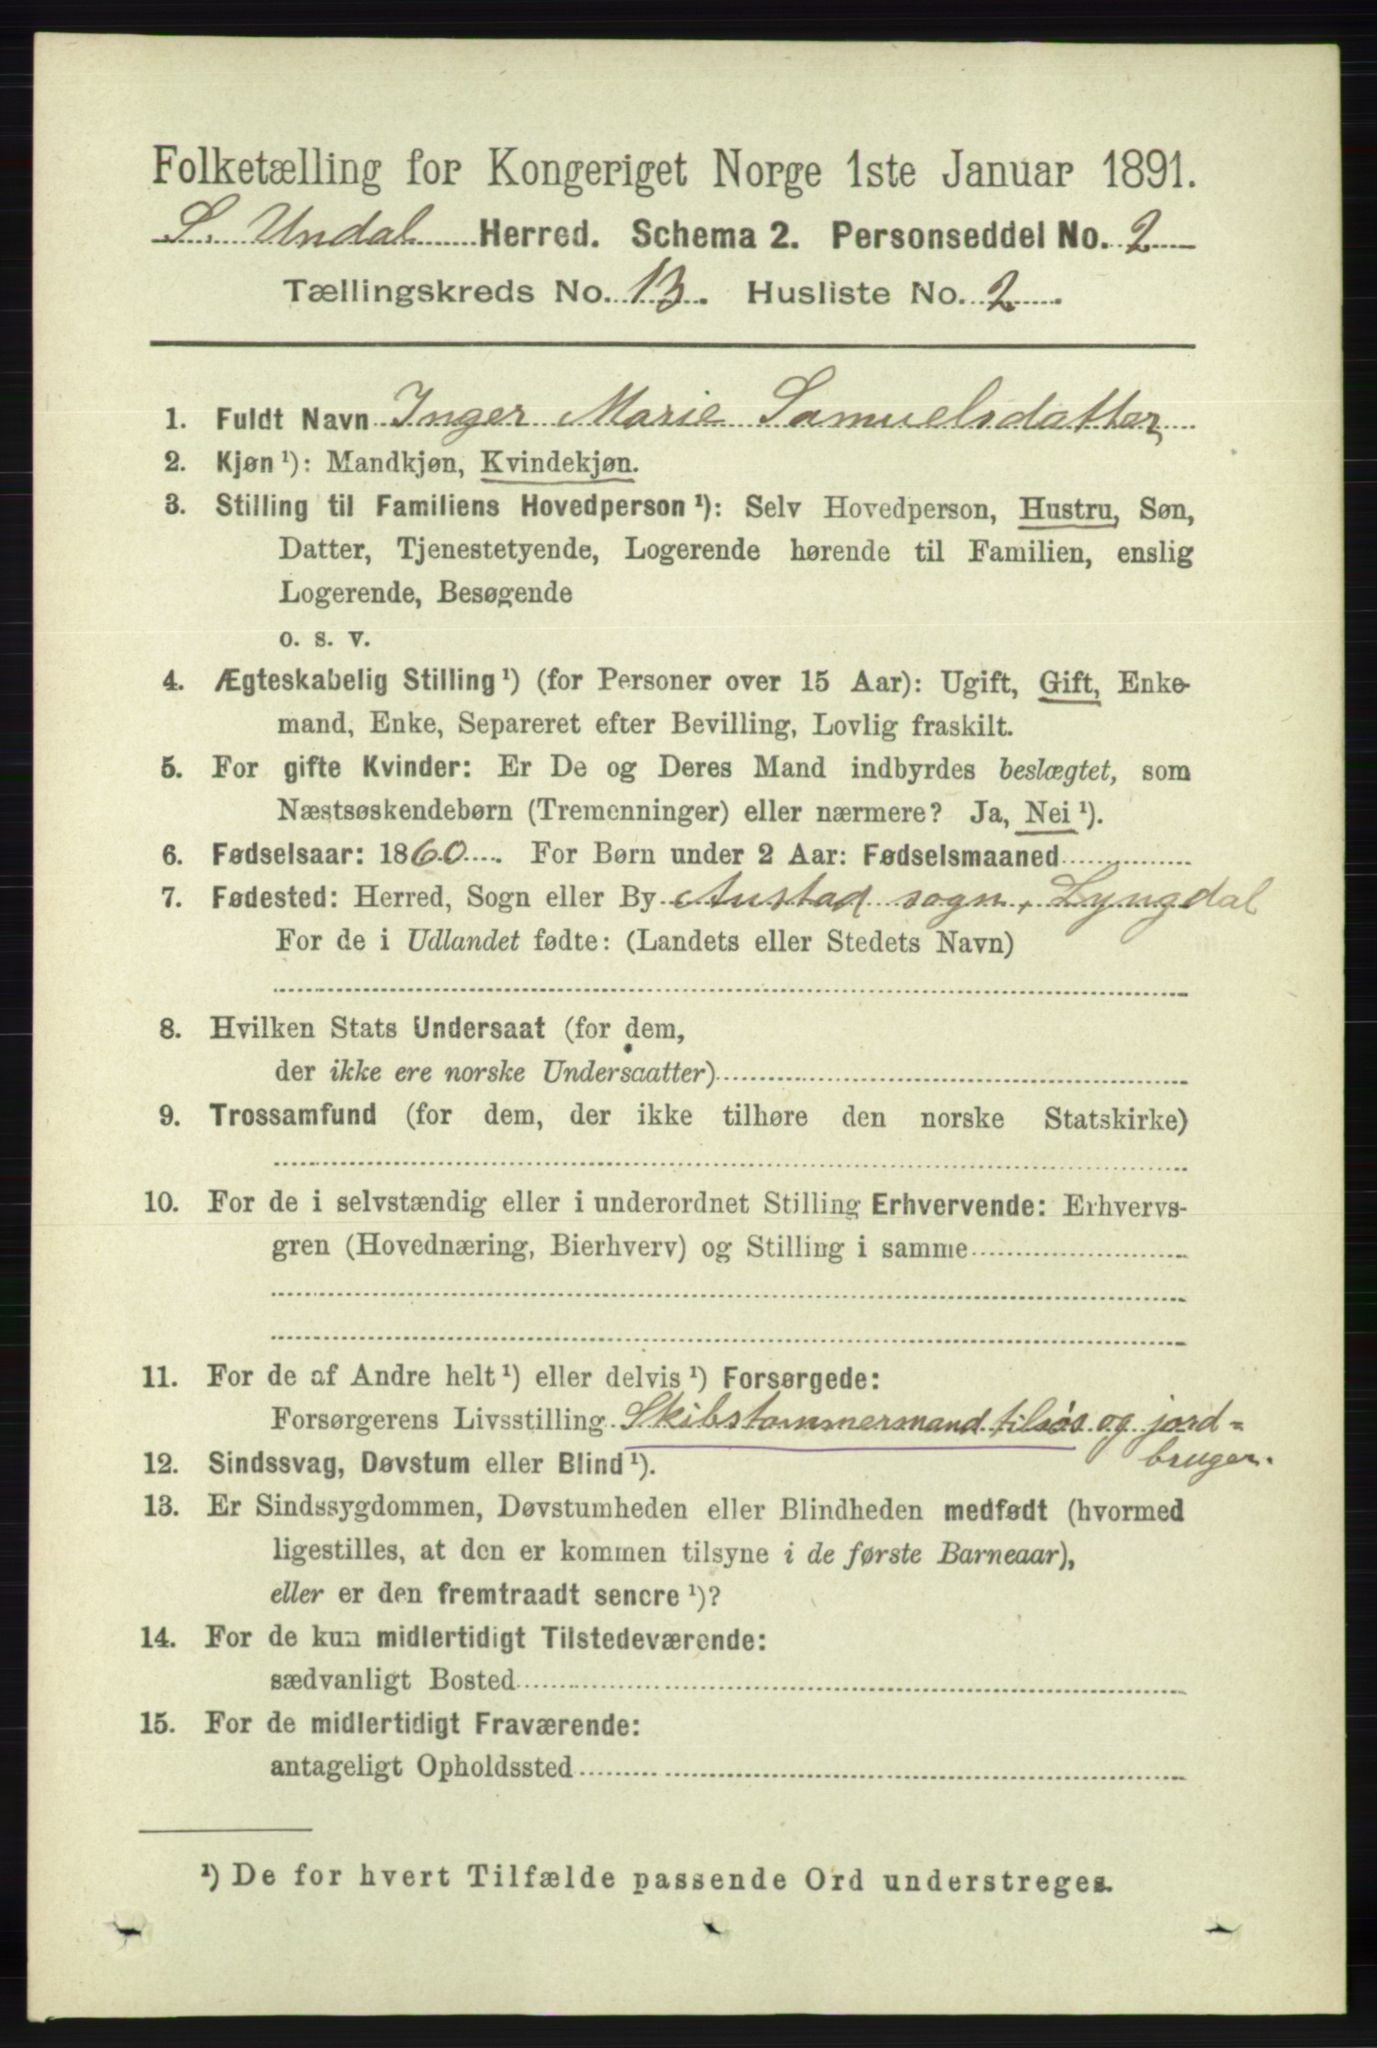 Folketælling for Kongeriget Norge 1ste Januar 1891.
S. Undal Herred. Schema 2. Personseddel No. 2
Tællingskreds No. 13. Husliste No. 2
1. Fuldt Navn Inger Marie Samuelsdatter
2. Kjøn ¹): Mandkjøn, Kvindekjøn.
3. Stilling til Familiens Hovedperson ¹): Selv Hovedperson, Hustru, Søn,
Datter, Tjenestetyende, Logerende hørende til Familien, enslig
Logerende, Besøgende
o. s. v.
4. Ægteskabelig Stilling ¹) (for Personer over 15 Aar): Ugift, Gift, Enke-
mand, Enke, Separeret efter Bevilling, Lovlig fraskilt.
5. For gifte Kvinder: Er De og Deres Mand indbyrdes beslægtet, som
Næstsøskendebørn (Tremenninger) eller nærmere? Ja, Nei ¹).
6. Fødselsaar: 1860. For Børn under 2 Aar: Fødselsmaaned
7. Fødested: Herred, Sogn eller By Austad sogn, Lyngdal
For de i Udlandet fødte: (Landets eller Stedets Navn)
8. Hvilken Stats Undersaat (for dem,
der ikke ere norske Undersaatter)
9. Trossamfund (for dem, der ikke tilhøre den norske Statskirke)
10. For de i selvstændig eller i underordnet Stilling Erhvervende: Erhvervs-
gren (Hovednæring, Bierhverv) og Stilling i samme
11. For de af Andre helt ¹) eller delvis ¹) Forsørgede:
Forsørgerens Livsstilling Skibstømmermand tilsøs og jord=
bruger.
12. Sindssvag, Døvstum eller Blind ¹).
13. Er Sindssygdommen, Døvstumheden eller Blindheden medfødt (hvormed
ligestilles, at den er kommen tilsyne i de første Barneaar),
eller er den fremtraadt senere ¹)?
14. For de kun midlertidigt Tilstedeværende:
sædvanligt Bosted
15. For de midlertidigt Fraværende:
antageligt Opholdssted
¹) De for hvert Tilfælde passende Ord understreges.